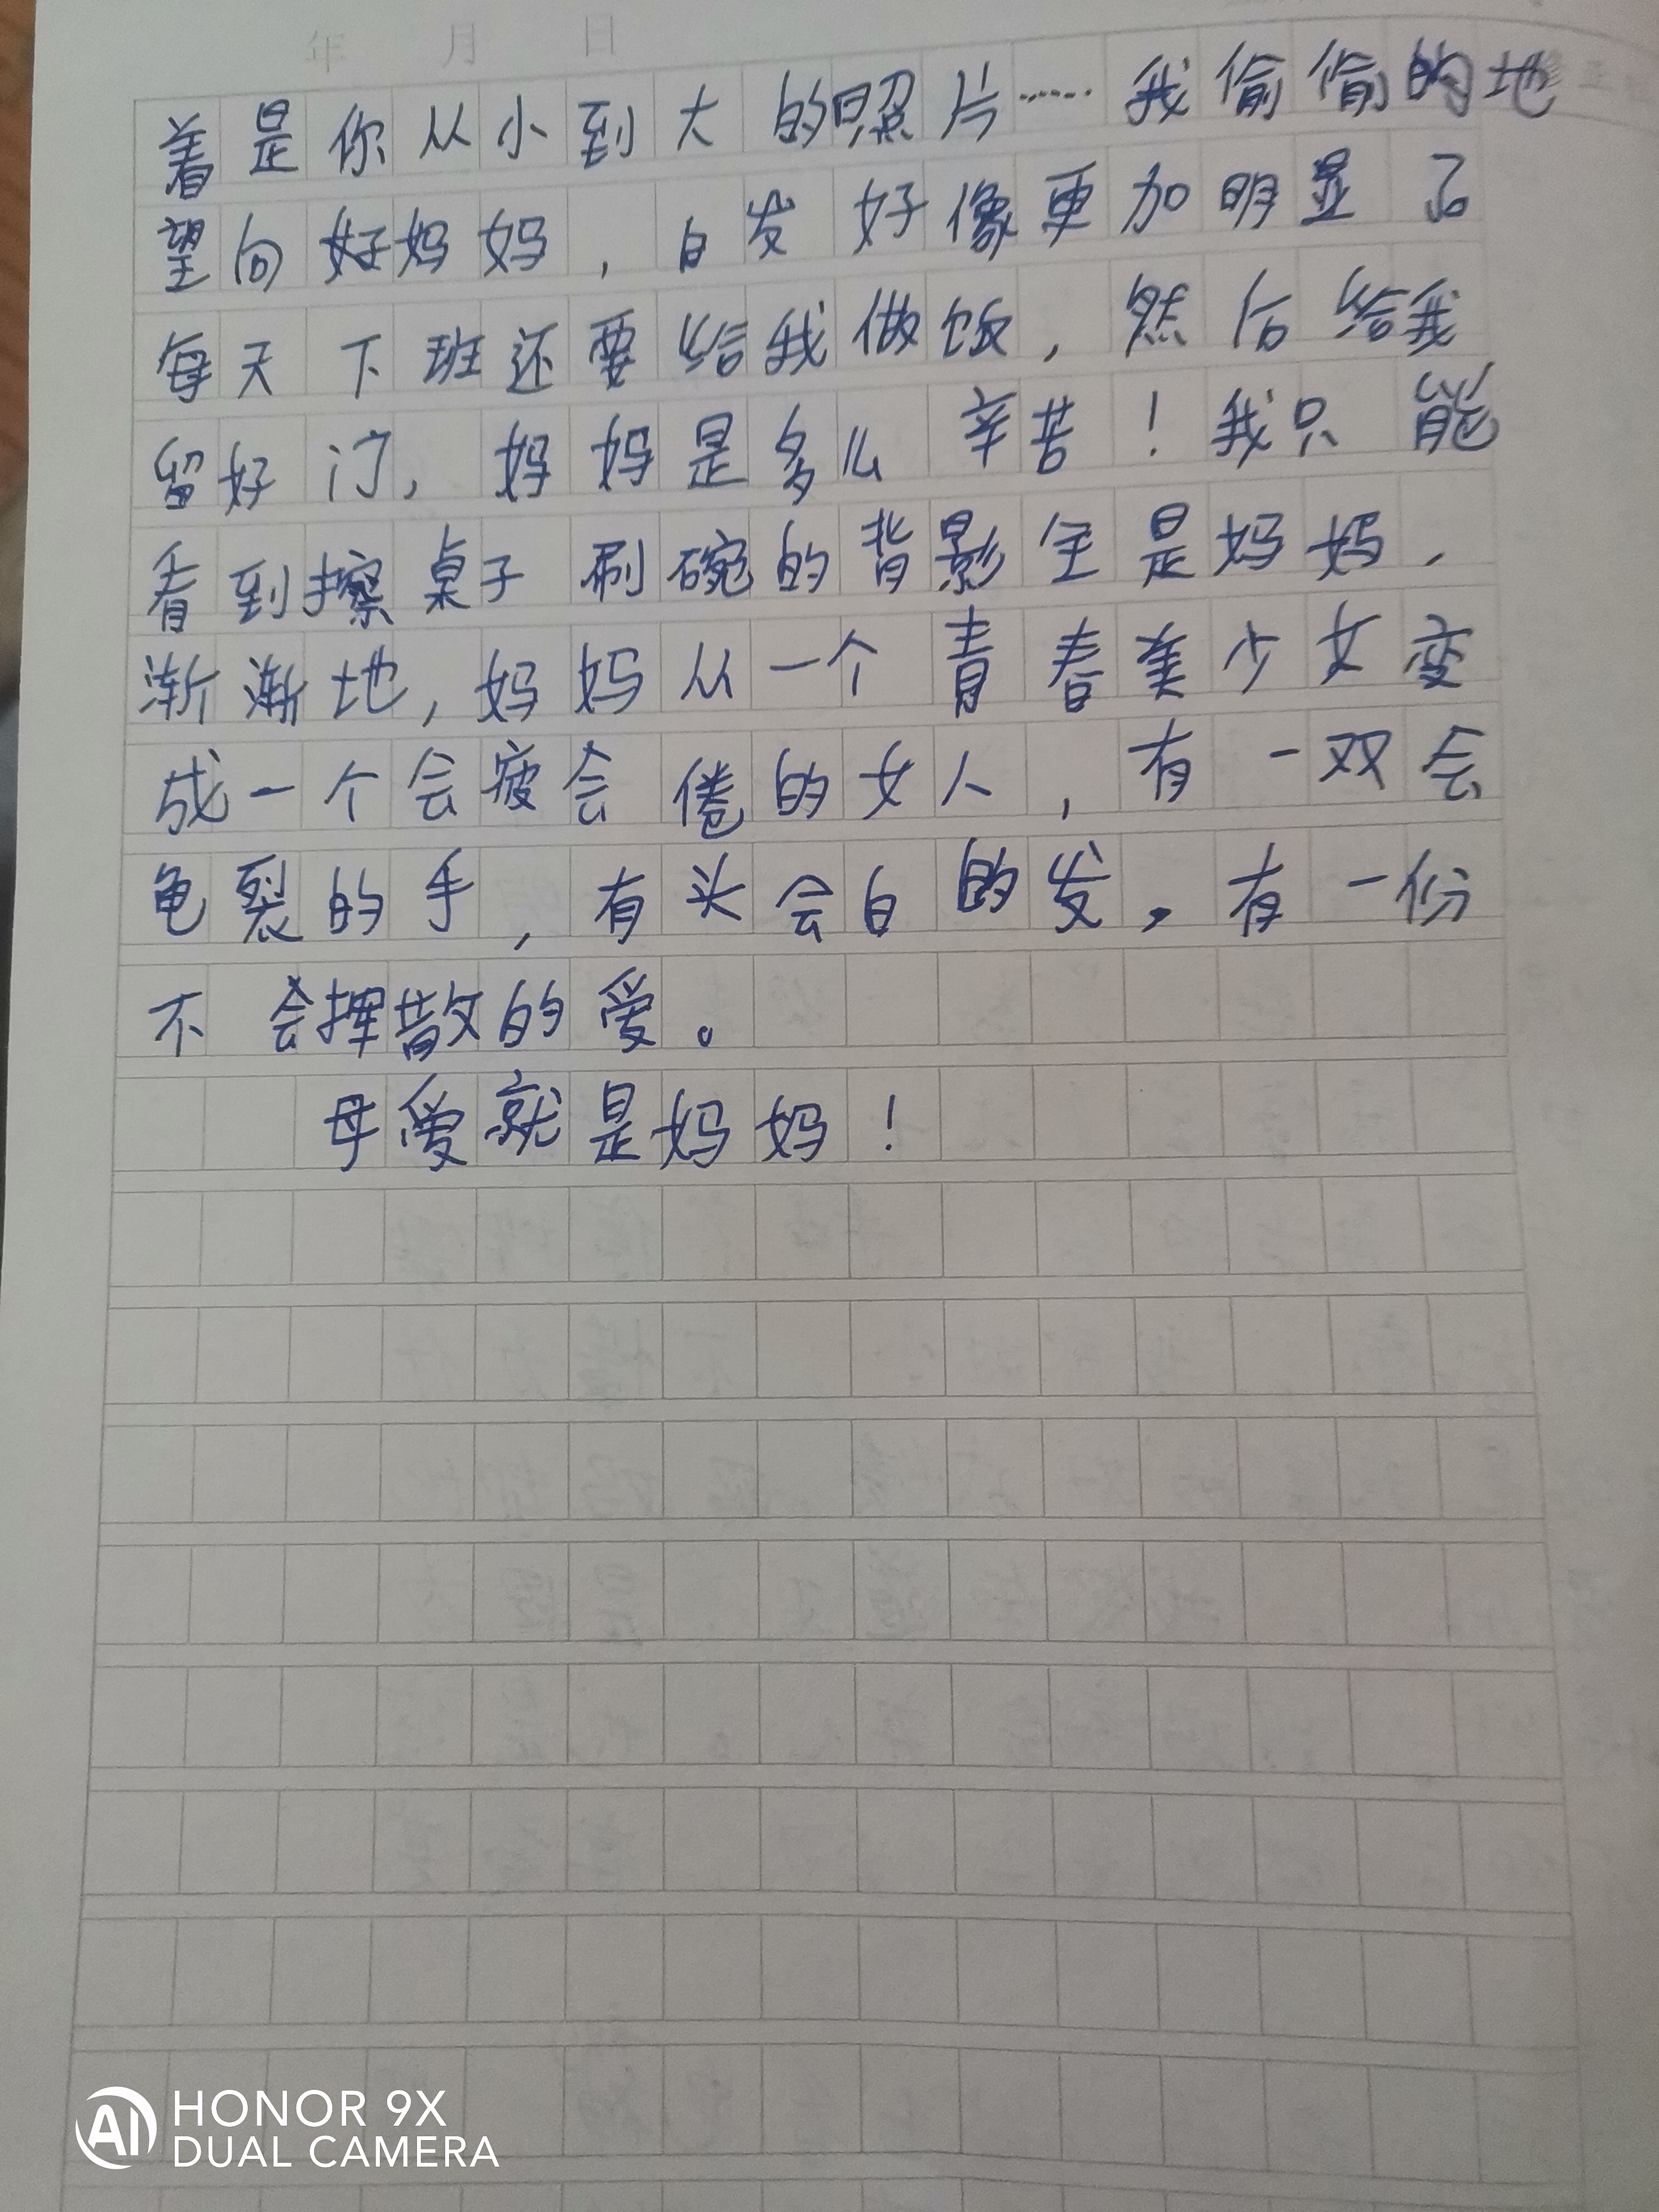 年 月 日
着是你从小到大的照片……我偷偷的地
望向好妈妈，白发好像更加明显了
每天下班还要给我做饭，然后给我
留好门，妈妈是多么辛苦！我只能
看到擦桌子刷碗的背影全是妈妈，
渐渐地，妈妈从一个青春美少女变
成一个会疲会倦的女人，有一双会
龟裂的手，有头会白的发，有一份
不会挥散的爱。
母爱就是妈妈！
AI HONOR 9X
DUAL CAMERA